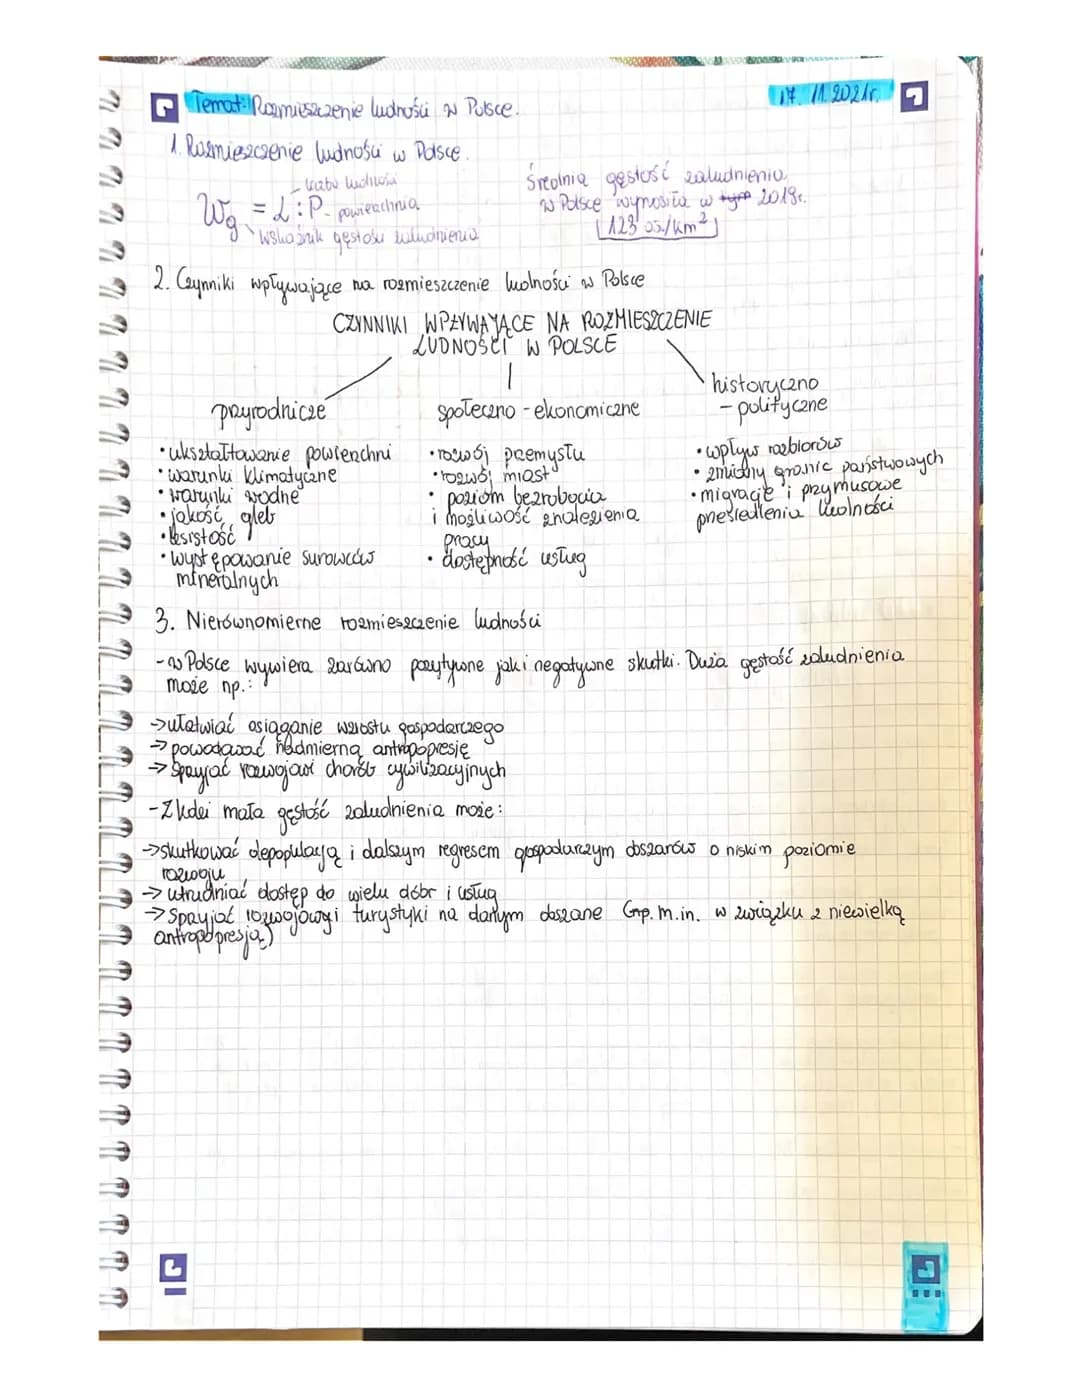 Temat: Rozmieszczenie ludności w Polsce.
17.11.2021r.
1. Rozmieszczenie ludności w Polsce.
liczba ludności
Wg = L : P - powierzchnia
wskaźnik gęstości zaludnienia
Średnia gęstość zaludnienia
w Polsce wynosiła w 2018r.
123 os/km²
2. Czynniki wpływające na rozmieszczenie ludności w Polsce
CZYNNIKI WPŁYWAJĄCE NA ROZMIESZCZENIE
LUDNOŚCI W POLSCE
przyrodnicze
• ukształtowanie powierzchni
• warunki klimatyczne
• warunki wodne
• jakość gleb
• lesistość
• występowanie surowców
mineralnych
społeczno - ekonomiczne
• rozwój przemysłu
• rozwój miast
• poziom bezrobocia
i możliwość znalezienia
pracy
• dostępność usług
historyczno
- polityczne
• wpływ rozbiorów
• zmiany granic państwowych
• migracje i przymusowe
przesiedlenia ludności
3. Nierównomierne rozmieszczenie ludności
- w Polsce wywiera zarówno pozytywne jak i negatywne skutki. Duża gęstość zaludnienia
może np.:
→ ułatwiać osiąganie wzrostu gospodarczego
→ powodować nadmierną antropopresję
→ Sprzyjać rozwojowi chorób cywilizacyjnych
- Z kolei mała gęstość zaludnienia może:
→ skutkować depopulacją i dalszym regresem gospodarczym obszarów o niskim poziomie
rozwoju
→ utrudniać dostęp do wielu dóbr i usług
→ Sprzyjać rozwojowi turystyki na danym obszarze (np. m.in. w związku z niewielką
antropopresją)